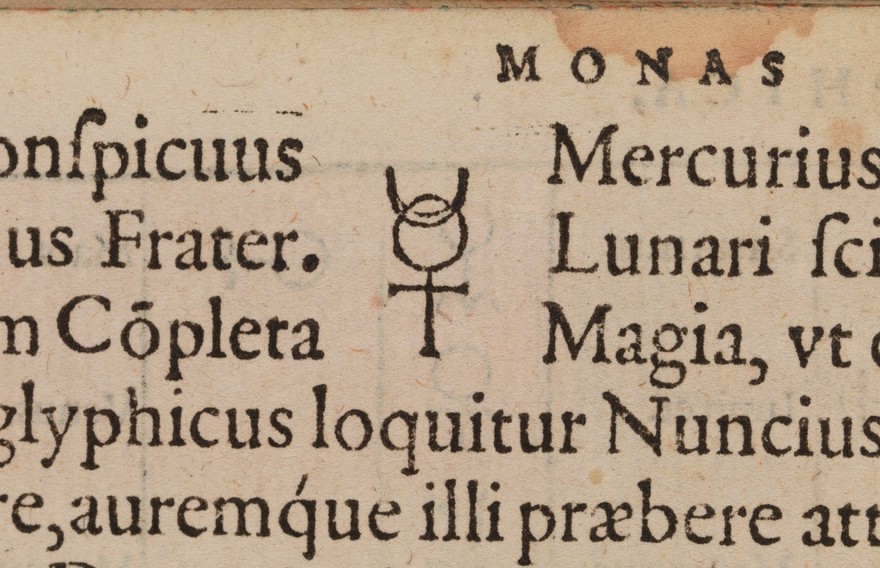 MONAS
onſpicuus ☿ Mercurius
us Frater. Lunari ſci
m Cõpleta Magia, vt
glyphicus loquitur Nuncius
re, auremq́ue illi præbere att